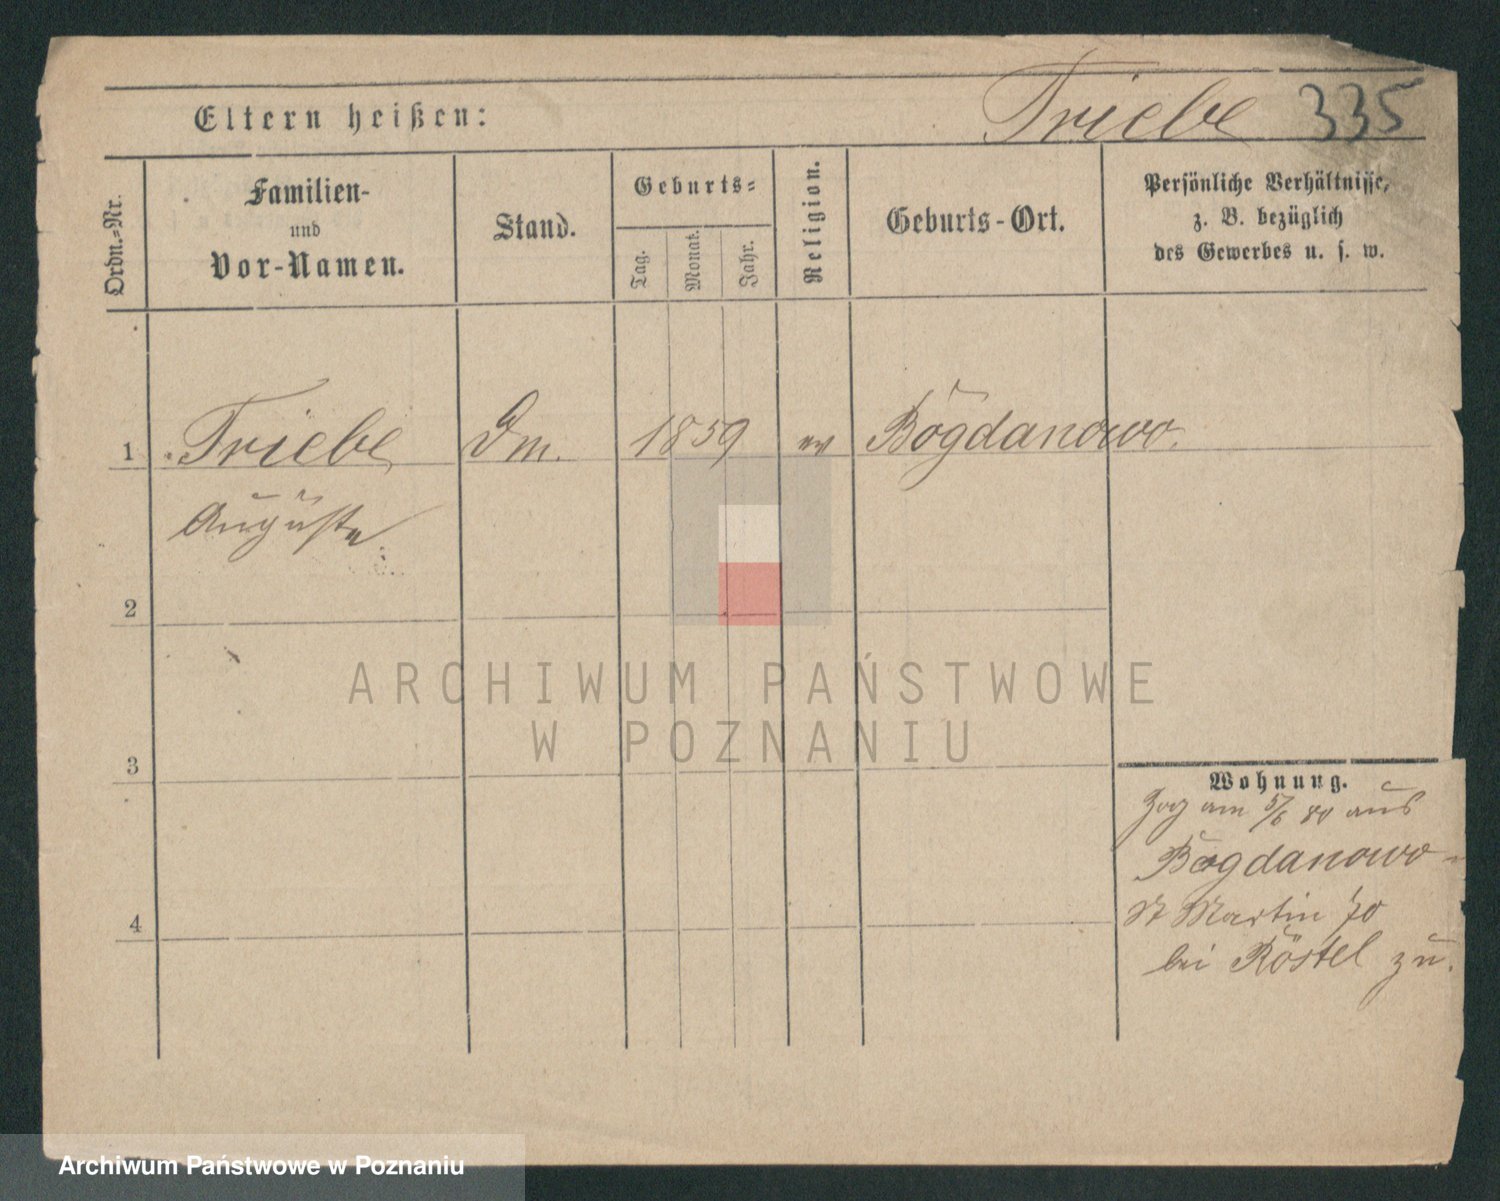 Triebe 335
Eltern heißen:
Ordn.-Nr.
Familien-
und
Vor-Namen.
Stand.
Geburts-
Tag.
Monat.
Jahr.
Religion.
Geburts-Ort.
Persönliche Verhältnisse,
z. B. bezüglich
des Gewerbes u. s. w.
1 Triebe Dm. 1859 ev Bogdanowo.
Auguste
2
3
4
Wohnung.
Zog am 5/6 80 aus
Bogdanowo -
St Martin 70
bei Röstel zu.
ARCHIWUM PAŃSTWOWE
W POZNANIU
Archiwum Państwowe w Poznaniu